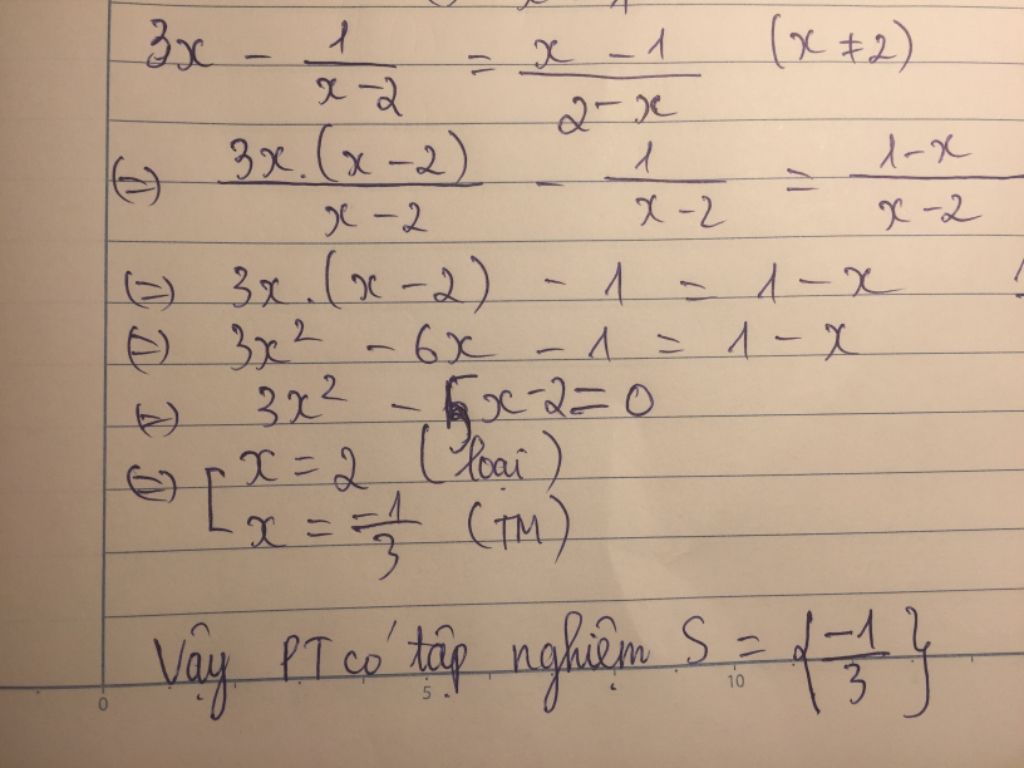 3x - 1/(x-2) = (x-1)/(2-x) (x ≠ 2)
(=) 3x.(x-2)/(x-2) - 1/(x-2) = (1-x)/(x-2)
(=) 3x.(x-2) - 1 = 1-x
(=) 3x² - 6x - 1 = 1-x
(=) 3x² - 5x-2=0
(=) [ x = 2 (loại)
x = -1/3 (TM)
Vậy PT có tập nghiệm S = {-1/3}
0 5 10